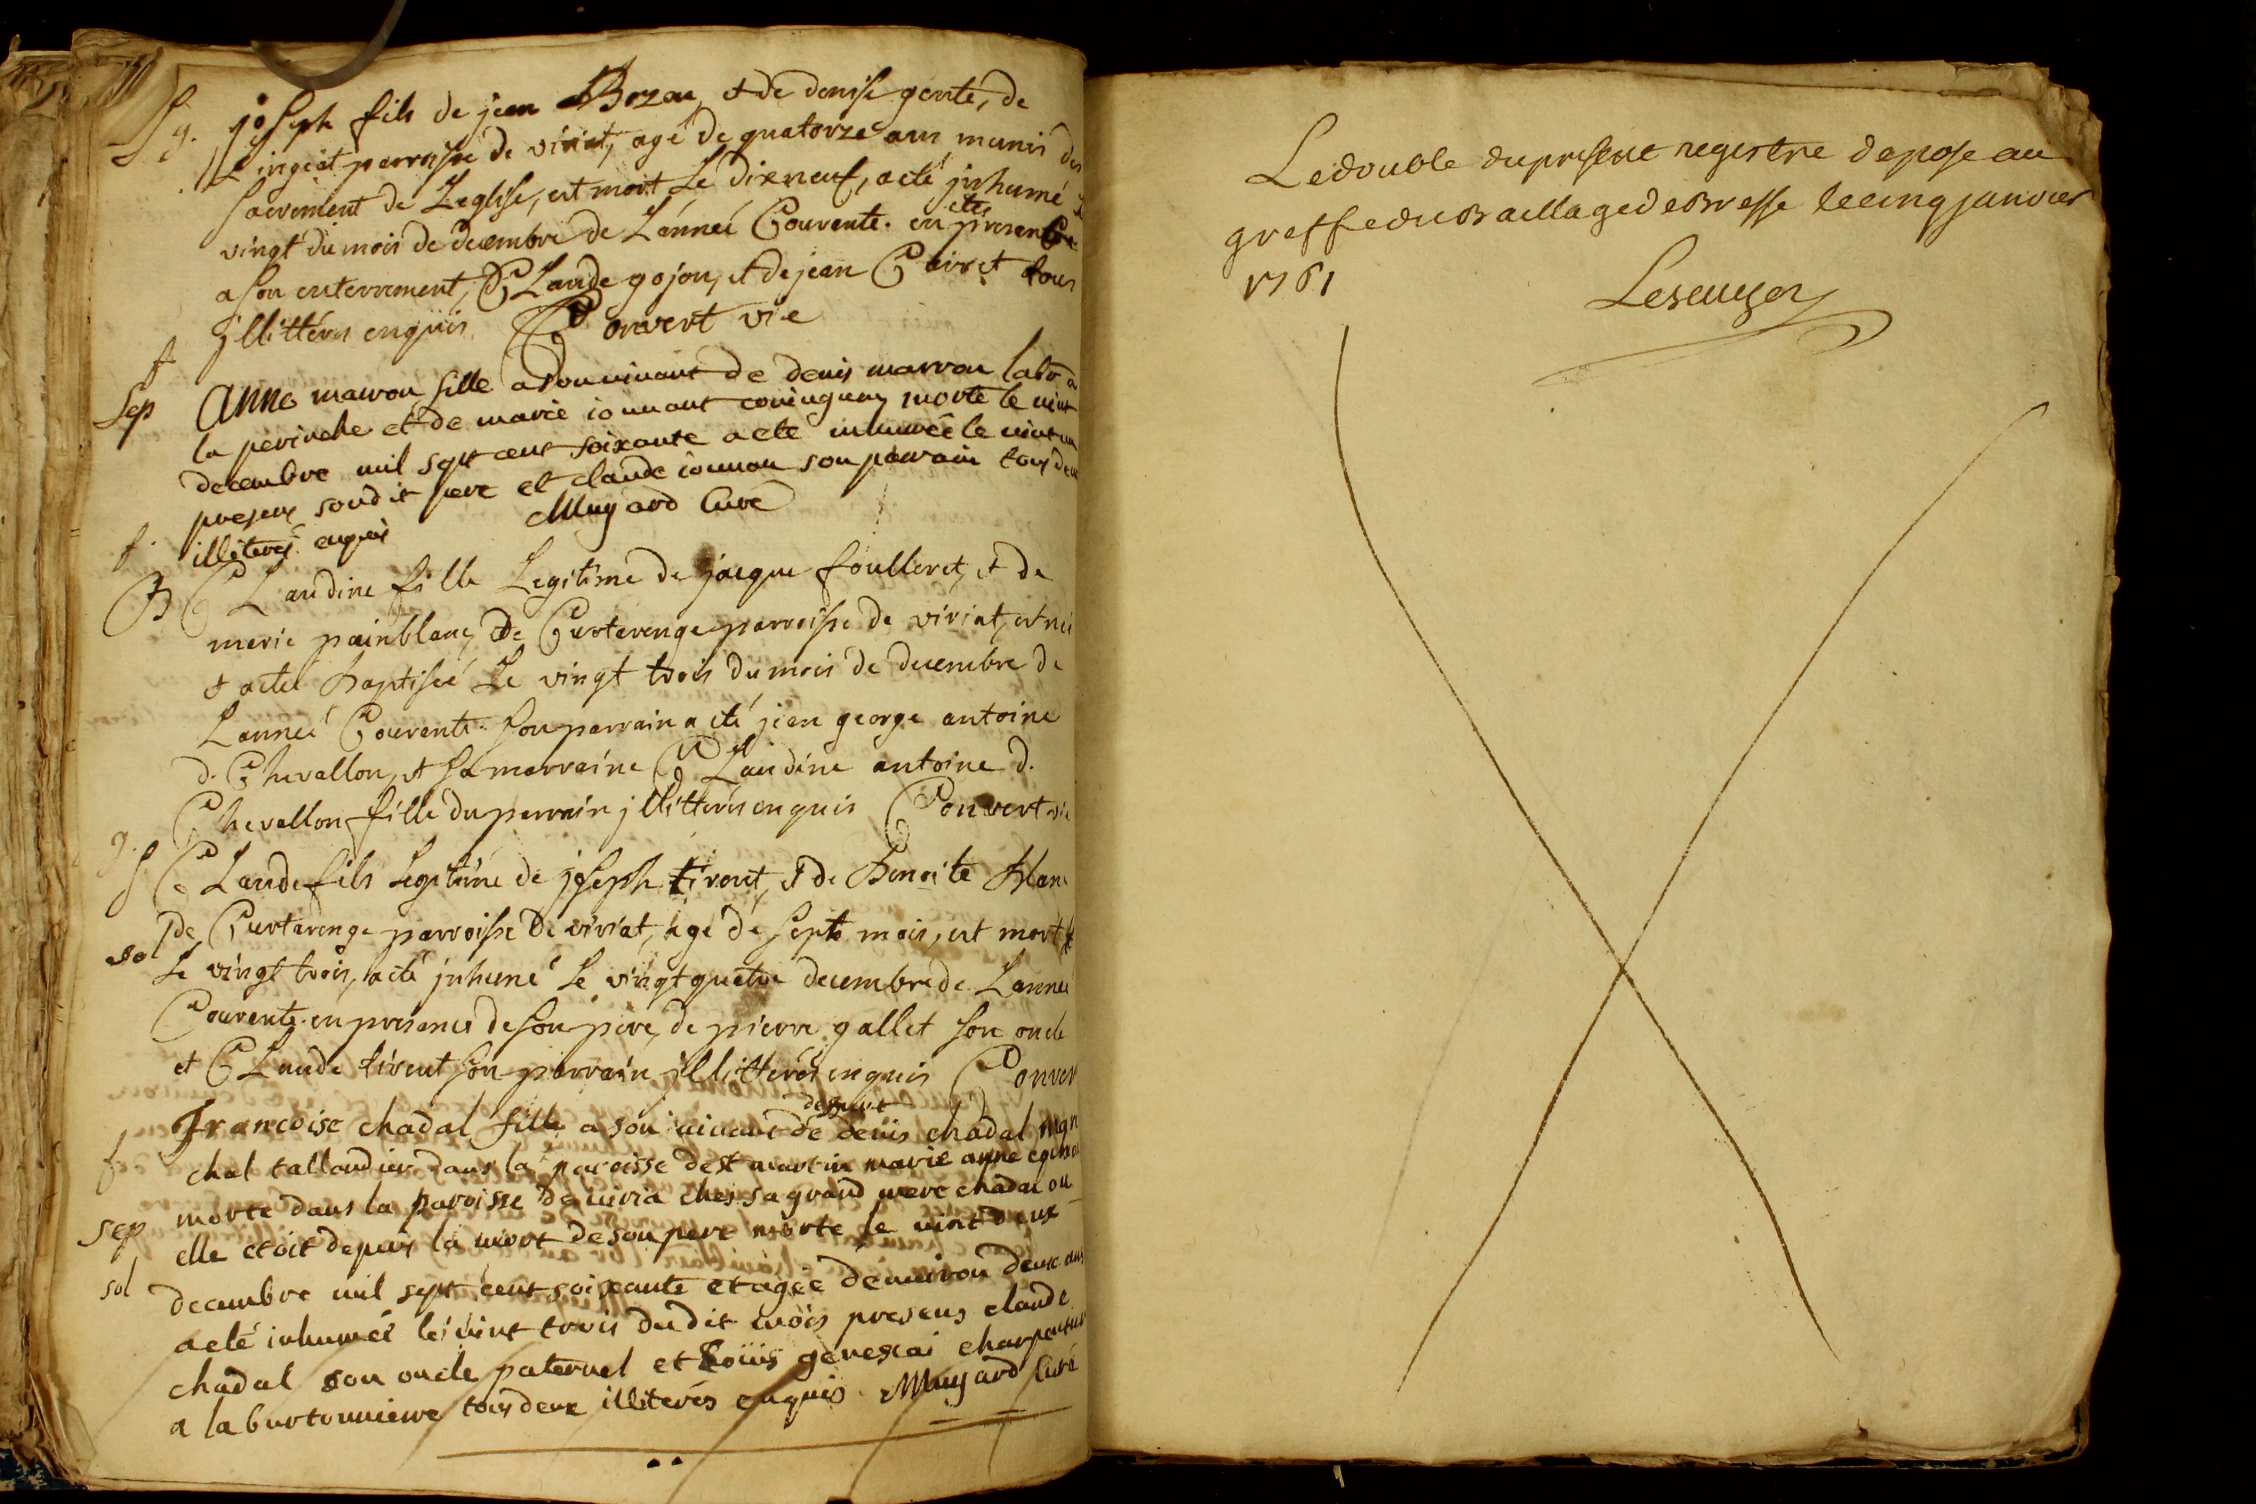 joseph fils de jean Bozon, et de denise gente, de
Lingeat parroisse de viriat, agé de quatorze ans munis des
sacrement de Leglise, est mort Le dixneuf, a eté jnhumé Le
vingt du mois de decembre de Lánneé Courente. en presence
a son enterrement, CLaude gojon, et de jean tous
jllitterés enquis Convert vic
f
Sep
Anne marron fille a son vivant de denis marron labr a
la perinche et de marie morte le vint
decembre mil sept cent soixante a eté inhumée le vint un
presens soudit pere et claude ionnon son parrain tous deux
illiterés enquis Mugard Curé
f.
B
CLaudine fille Legitime de jacque foulleret, et de
marie painblanc, De Curtarenge parroisse de viriat, est neé
et a eteé baptiseé Le vingt trois du mois de decembre de
Lanneé Courente. son parrain a eté jean george antoine
d. Chevallon, et sa marraine CLaudine antoine d.
Chevallon fille du parrain jllitterés enquis Convert vic
g.
S
CLaude fils Legitime de joseph tirent, et de Benoite blanc
de Curtarenge parroisse De viriat, agé de sept mois, est mort
sol
Le vingt trois, a eté jnhumé Le vingt quatre decembre de Lanneé
Courente. en presence de son pere, de pierre gallet son oncle
et CLaude tirent son parrain jllitterés enquis Conver
deffunt
Francoise chadal fille a son vivant de denis chadal
f
chal tallandier dans la paroisse de st martin marie anne
morte dans la paroisse de viria ches sa grand mere chadal ou
sep
elle etoit depuis la mort de son pere morte le vint deux
sol
decembre mil sept cent soixante et agée d'environ deux ans
a eté inhumeé le vint trois dudit mois presens claude
chadal son oncle paternel et Loüis charpentier
a la burtonniere tous deux illiterés enquis Mugard Curé
Le double du present registre depose au
greffe du Baillage de Bresse le cinq janvier
1761